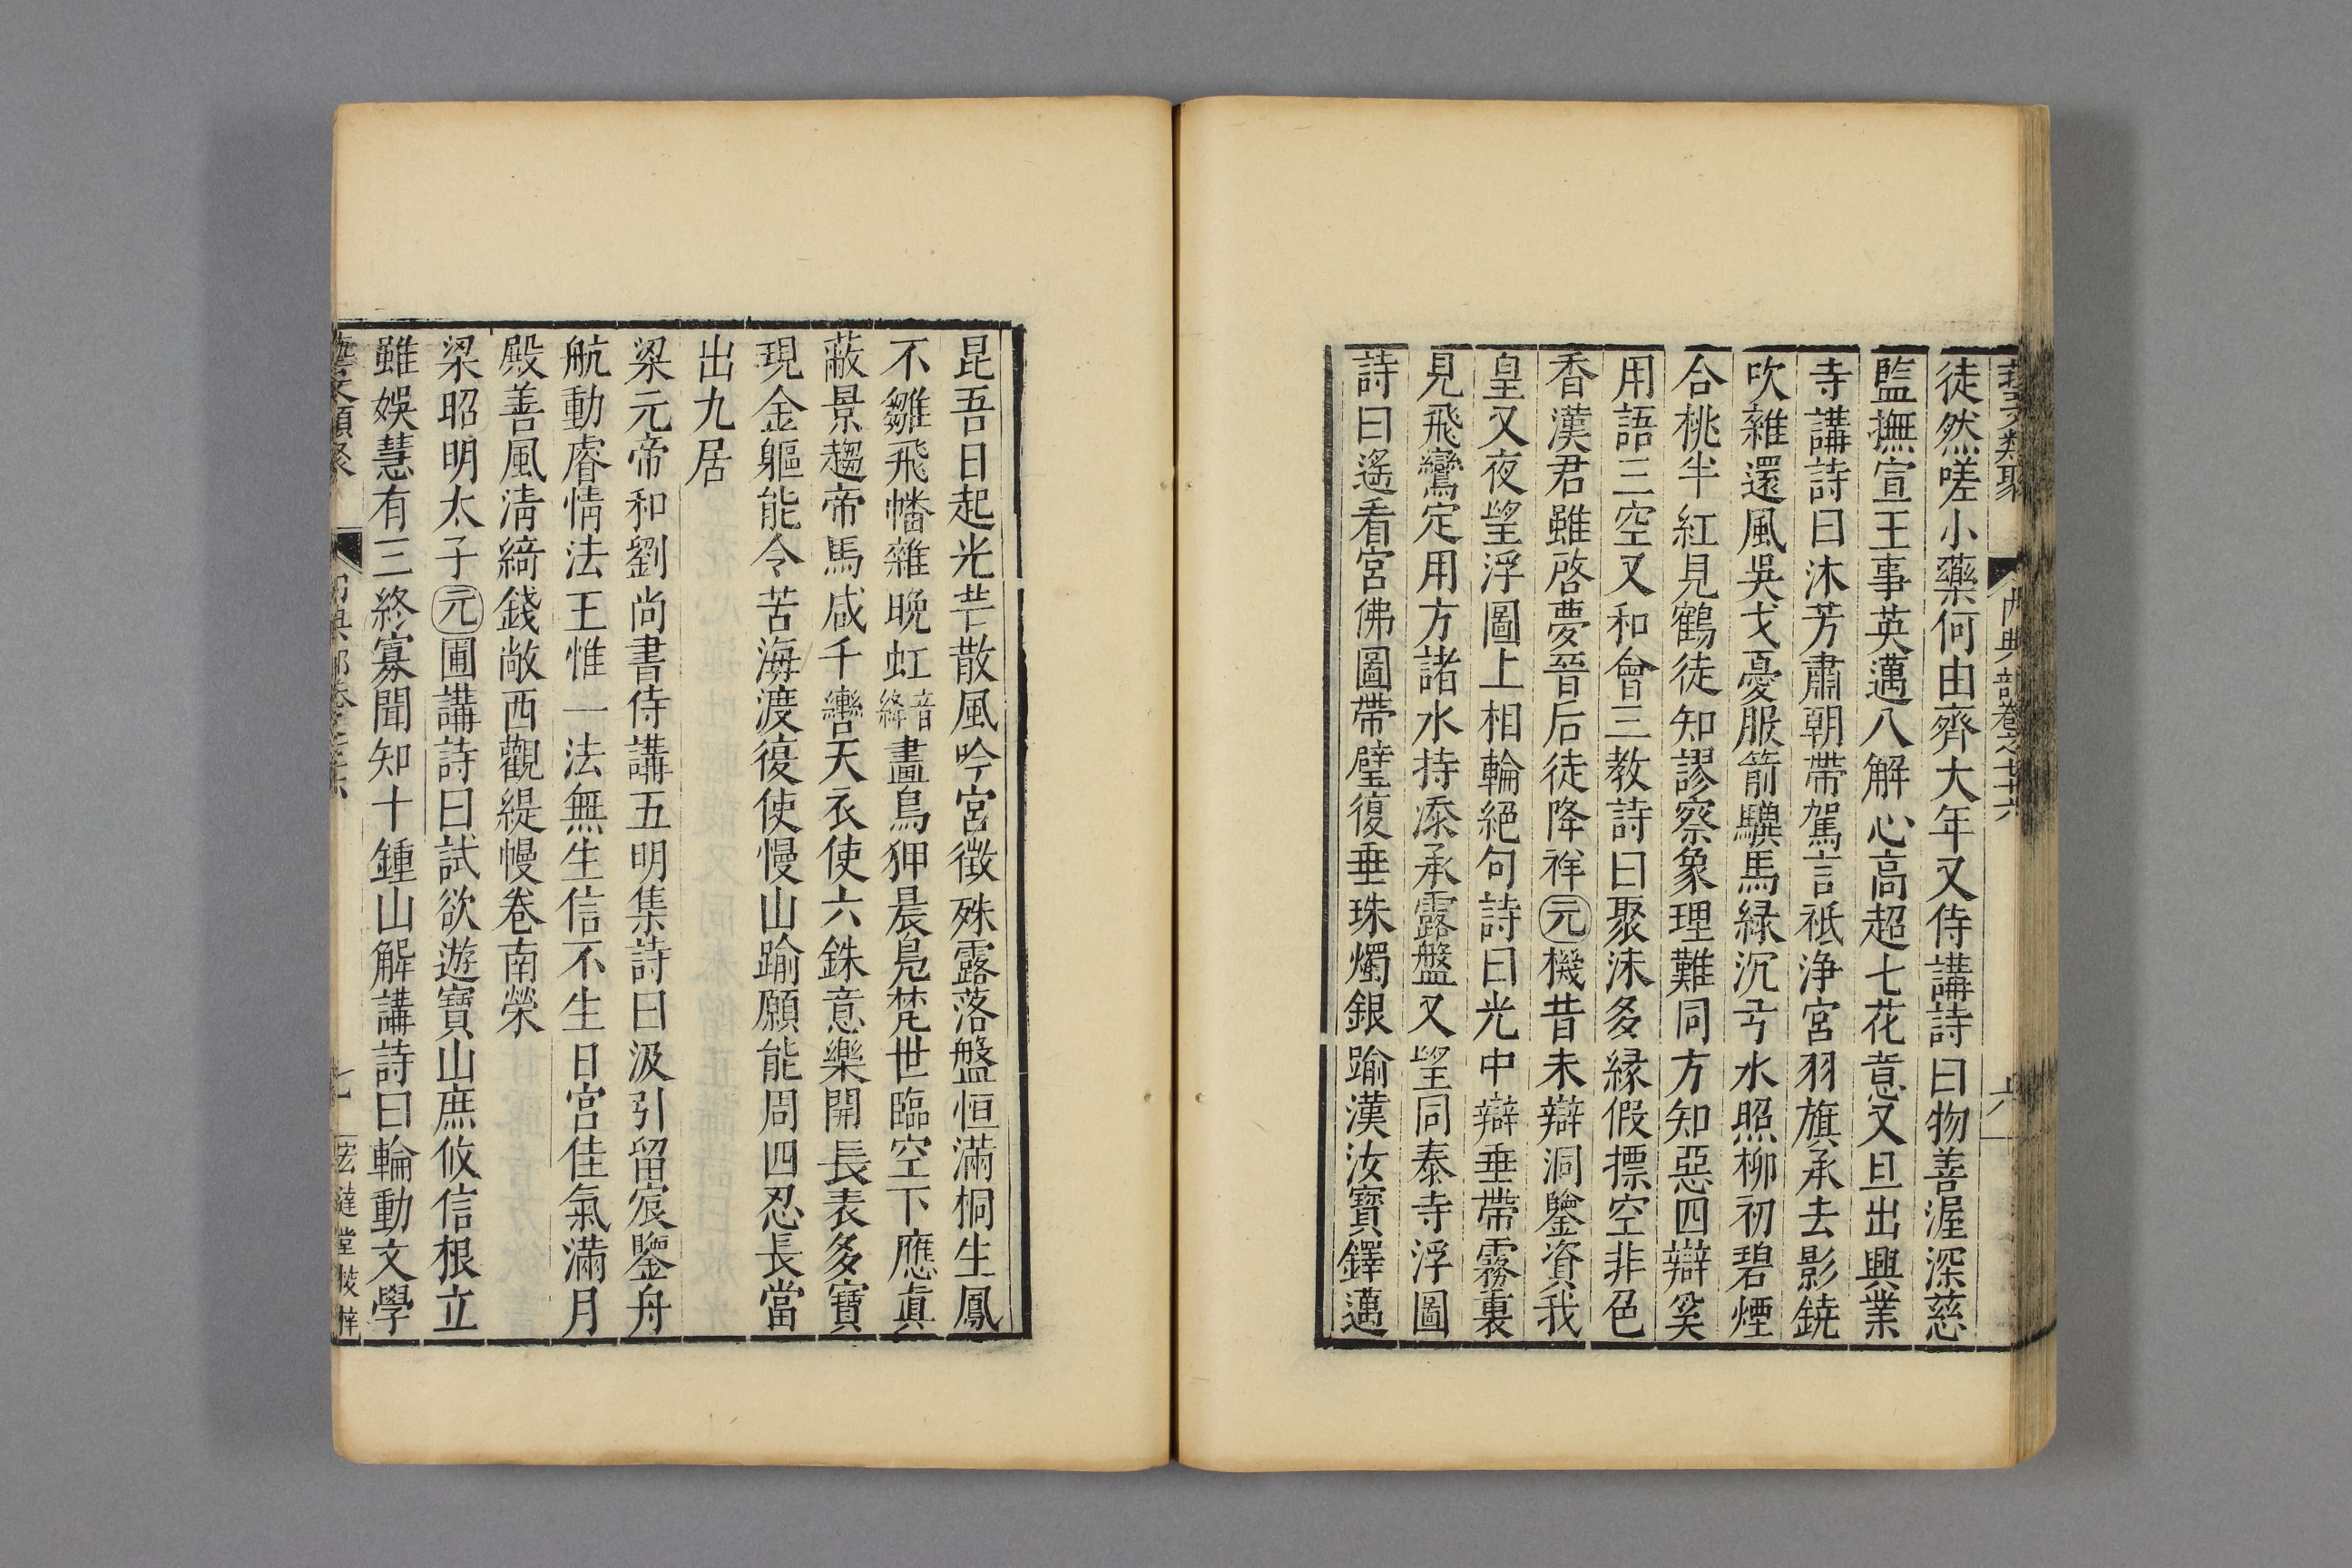 藝文類聚 内典部卷之七十六 六
徒然嗟小藥何由齊大年又侍講詩曰物善渥深慈
監撫宣王事英邁八解心高超七花意又旦出興業
寺講詩曰沐芳肅朝帶駕言祗浄宮羽旗承去影鐃
吹雜還風吳戈憂服箭驥馬緑沉弓水照柳初碧煙
合桃半紅見鶴徒知謬察象理難同方知惡四辯奚
用語三空又和會三教詩曰聚沫多縁假摽空非色
香漢君雖啓夢晉后徒降祥元機昔未辯洞鑒資我
皇又夜望浮圖上相輪絕句詩曰光中辯垂帶霧裏
見飛鸞定用方諸水持添承露盤又望同泰寺浮圖
詩曰遙看宮佛圖帶璧復垂珠燭銀踰漢汝寶鐸邁
昆吾日起光芒散風吟宮徵殊露落盤恒滿桐生鳳
不雛飛幡雜晚虹音絳畫鳥狎晨鳧梵世臨空下應眞
蔽景趨帝馬咸千轡天衣使六銖意樂開長表多寶
現金軀能令苦海渡復使慢山踰願能周四忍長當
出九居
梁元帝和劉尚書侍講五明集詩曰汲引留宸鑒舟
航動睿情法王惟一法無生信不生日宮佳氣滿月
殿善風淸綺錢敞西觀緹幔卷南榮
梁昭明太子元圃講詩曰試欲遊寶山庶攸信根立
雖娛慧有三終寡聞知十鍾山解講詩曰輪動文學
藝文類聚 内典部卷之七十六 七 宏達堂校梓